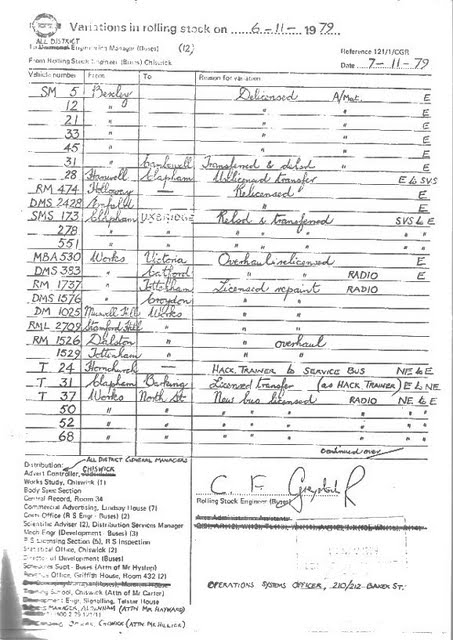 Variations in rolling stock on 6-11- 1979.
ALL DISTRICT
To Engineering Manager (Buses) (12)
Reference 121/1/CGR
From Rolling Stock Engineer (Buses) Chiswick
Date 7-11-79
Vehicle number From To Reason for variation
SM 5 Bexley Delicensed A/Mat. E
12 " " " E
21 " " " E
33 " " " E
45 " " " E
31 " Camberwell Transferred & dlsd E
28 Hanwell Clapham Unlicensed transfer E to SVS
RM 474 Holloway — Relicensed E
DMS 2428 Enfield — " E
SMS 173 Clapham UXBRIDGE Relsd & transferred SVS to E
278 " " " " " "
551 " " " " " "
MBA 530 Works Victoria Overhaul relicensed E
DMS 383 " Catford " RADIO E
RM 1737 " Tottenham Licensed repaint RADIO
DMS 1576 " Croydon "
DM 1025 Muswell Hill Works "
RML 2709 Stamford Hill " "
RM 1526 Dalston " " overhaul
1529 Tottenham " " "
T 24 Hornchurch HACK TRAINER to SERVICE BUS NE to E
T 31 Clapham Barking Licensed transfer (as HACK TRAINER) E to NE
T 37 Works North St New bus licensed RADIO NE to E
50 " " " " " "
52 " " " " " "
68 " " " " " "
continued over
ALL DISTRICT GENERAL MANAGERS
Distribution: CHISWICK
Advert Controller,
Works Study, Chiswick (1)
Body Spec Section
Central Record, Room 34
Commercial Advertising, Lindsay House (7)
Costs Office (R S Engr - Buses) (2)
Scientific Adviser (2), Distribution Services Manager
Mech Engr (Development - Buses) (3)
R S Licensing Section (5), R S Inspection
Statistical Office, Chiswick (2)
Director of Development (Buses)
Schedules Supt - Buses (Attn of Mr Hyslop)
Revenue Office, Griffith House, Room 432 (2)
Training School, Chiswick (Attn of Mr Carter)
Development Engr, Signalling, Telstar House
WORKS MANAGER, ALDENHAM (ATTN MR HAYWARD)
CHISWICK (ATTN MR HILLICK)
Rolling Stock Engineer (Buses)
Area Administrative Assistants
OPERATIONS SYSTEMS OFFICER, 210/212 BAKER ST.